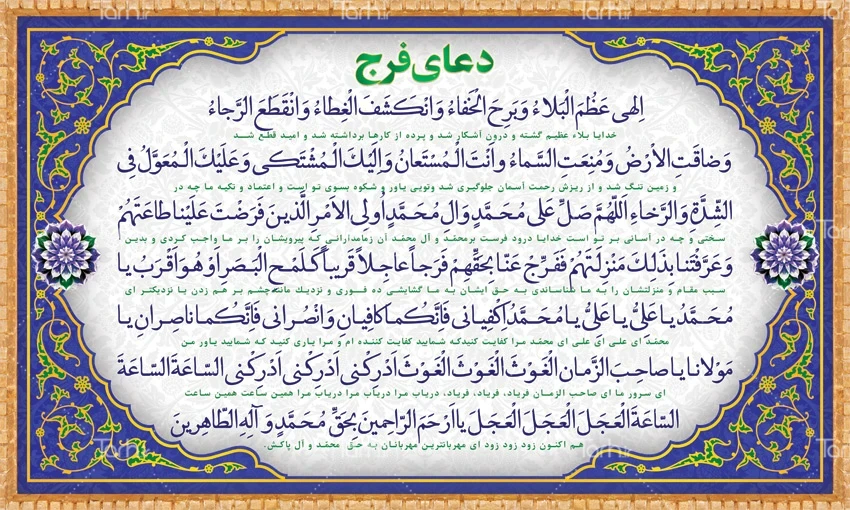 دعای فرج
اِلٰهی عَظُمَ الْبَلاءُ وَ بَرِحَ الْخَفاءُ وَ انْكَشَفَ الْغِطاءُ وَ انْقَطَعَ الرَّجاءُ
خدایا بلاء عظیم گشته و درون آشکار شد و پرده از کارها برداشته شد و امید قطع شد
وَ ضاقَتِ الاَْرْضُ وَ مُنِعَتِ السَّماءُ وَ اَنْتَ الْمُسْتَعانُ وَ اِلَیْكَ الْمُشْتَكی وَ عَلَیْكَ الْمُعَوَّلُ فِی
و زمین تنگ شد و از ریزش رحمت آسمان جلوگیری شد و تویی یاور و شکوه بسوی تو است و اعتماد و تکیه ما چه در
الشِّدَّةِ وَ الرَّخاءِ اَللّهُمَّ صَلِّ عَلی مُحَمَّدٍ وَ الِ مُحَمَّدٍ اُولِی الاَْمْرِ الَّذینَ فَرَضْتَ عَلَیْنا طاعَتَهُمْ
سختی و چه در آسانی بر تو است خدایا درود فرست برمحمّد و آل محمّد آن زمامدارانی که پیرویشان را بر ما واجب کردی و بدین
وَ عَرَّفْتَنا بِذلِكَ مَنْزِلَتَهُمْ فَفَرِّجْ عَنّا بِحَقِّهِمْ فَرَجاً عاجِلاً قَریباً كَلَمْحِ الْبَصَرِ اَوْ هُوَ اَقْرَبُ یا
سبب مقام و منزلتشان را به ما شناساندی به حق ایشان به ما گشایشی ده فوری و نزدیک مانند چشم بر هم زدن یا نزدیکتر ای
مُحَمَّدُ یا عَلِیُّ یا عَلِیُّ یا مُحَمَّدُ اِكْفِیانی فَاِنَّكُما كافِیانِ وَ انْصُرانی فَاِنَّكُما ناصِرانِ یا
محمّد ای علی ای علی ای محمّد مرا کفایت کنید که شمایید کفایت کننده ام و مرا یاری کنید که شمایید یاور من
مَوْلانا یا صاحِبَ الزَّمانِ الْغَوْثَ الْغَوْثَ الْغَوْثَ اَدْرِكْنی اَدْرِكْنی اَدْرِكْنی السّاعَةَ السّاعَةَ
ای سرور ما ای صاحب الزمان فریاد، فریاد، فریاد، دریاب مرا دریاب مرا دریاب مرا همین ساعت همین ساعت
السّاعَةَ الْعَجَلَ الْعَجَلَ الْعَجَلَ یا اَرْحَمَ الرّاحِمینَ بِحَقِّ مُحَمَّدٍ وَ آلِهِ الطّاهِرینَ
هم اکنون زود زود زود ای مهربانترین مهربانان به حق محمّد و آل پاکش.
Tarh.ir